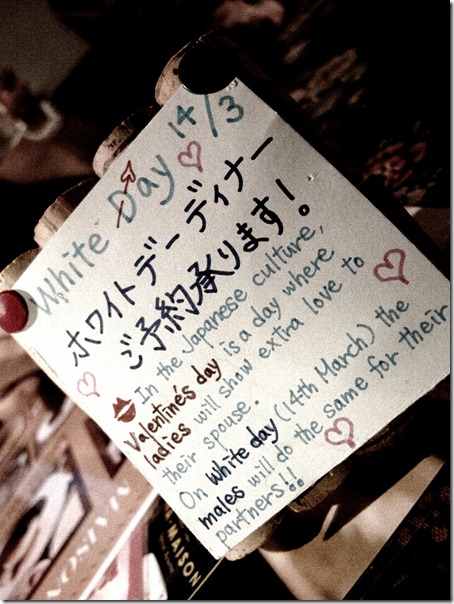 White Day 14/3
ホワイトデーディナー
ご予約承ります!
In the Japanese culture,
Valentine's day is a day where
ladies will show extra love to
their spouse.
On white day (14th March) the
males will do the same for their
partners!!
MAISON
MAISON